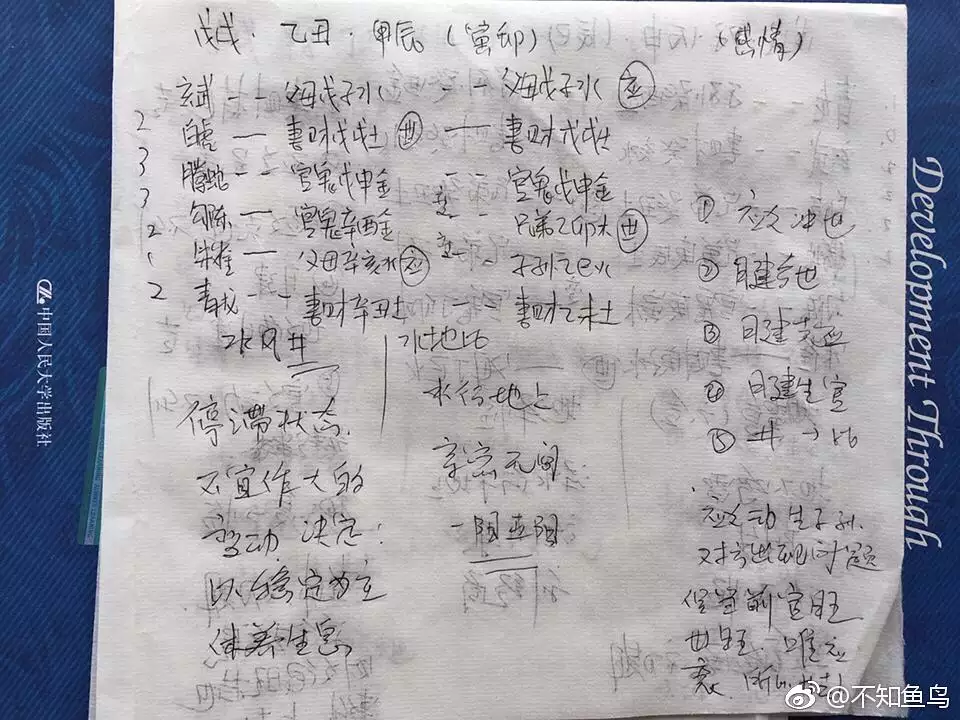 戊戌·乙丑·甲辰(寅卯) (感情)
玄武 -- 父母戊子水 -- 父母戊子水 应
2 白虎 — 妻财戊戌土 世 — 妻财戊戌土
3 腾蛇 -- 官鬼戊申金 -- 官鬼戊申金
3 勾陈 — 官鬼辛酉金 -- 兄弟乙卯木 世
2 朱雀 — 父母辛亥水 应 -- 子孙乙巳火
2 青龙 -- 妻财辛丑土 妻财乙未土
水风井
水地比
停滞状态.
不宜作大的
变动 决定:
以稳定为主
休养生息
水行地上
亲密无间
① 应爻冲世
② 日建合世
③ 日建克应
④ 日建生官
⑤ 井→比
应爻动生子孙.
对方出现问题
但当前官旺
世旺. 唯应
衰.
中国人民大学出版社
Development Through
@不知鱼鸟